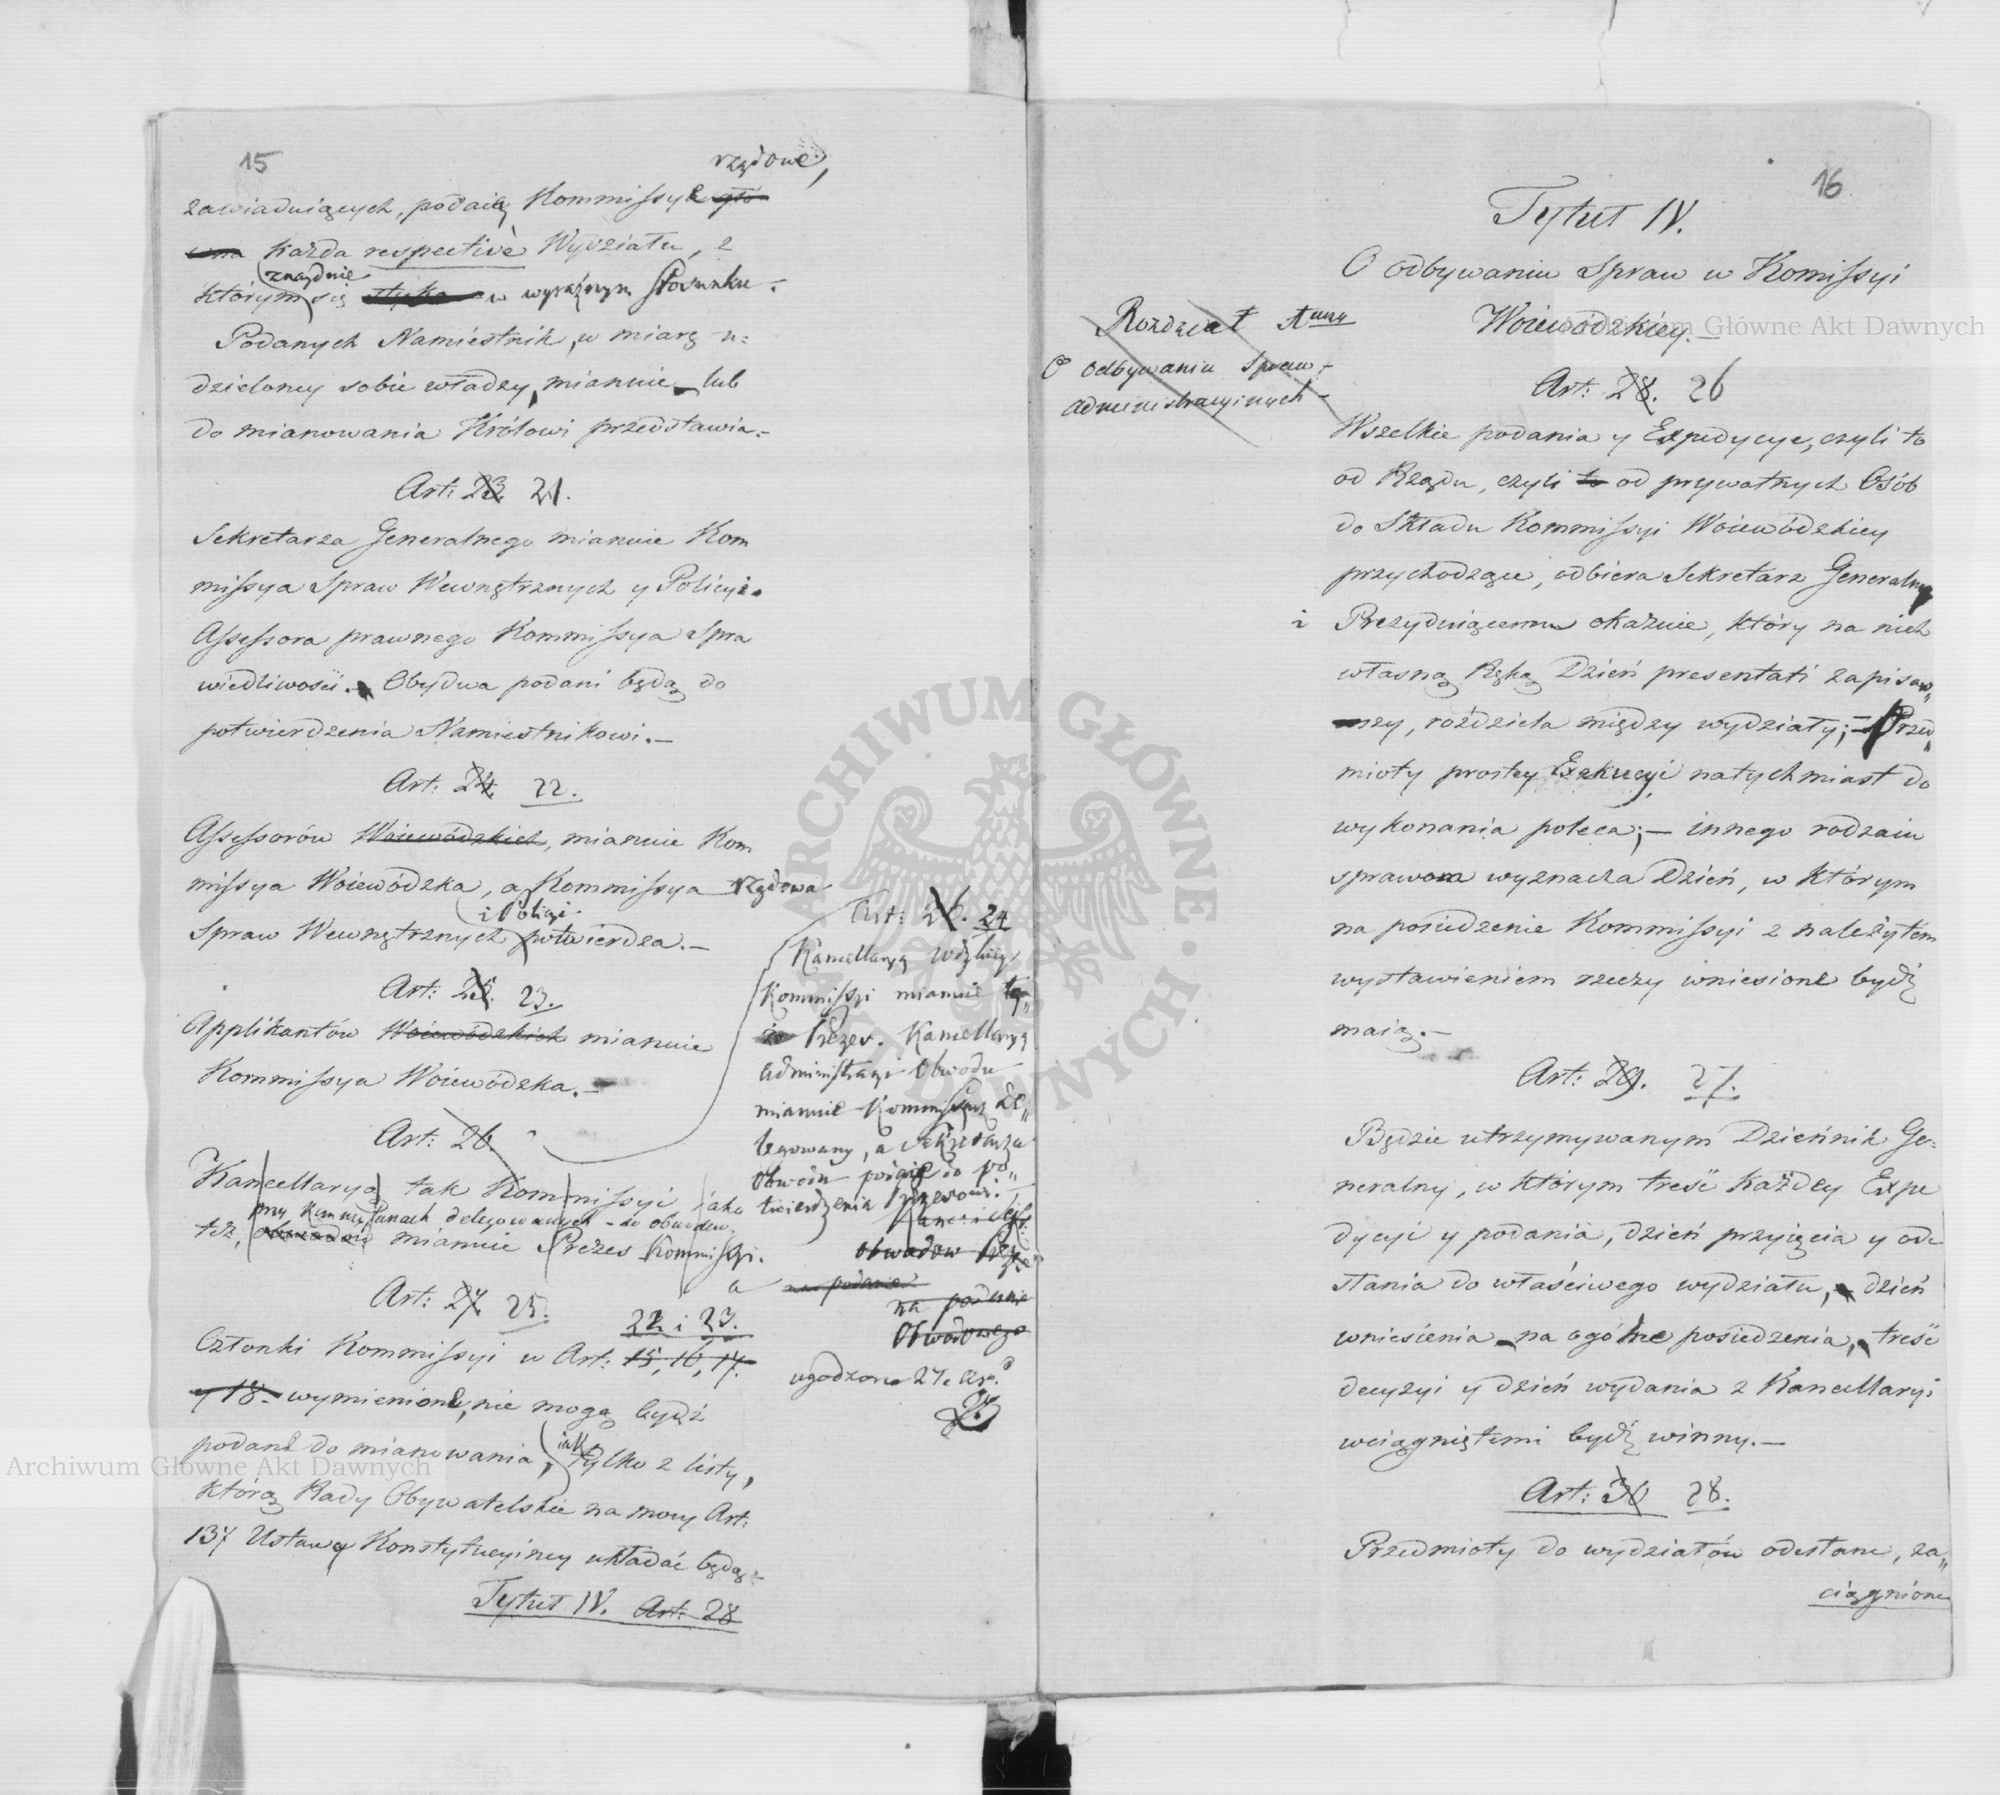 15
rządowe,
zawiaduiących, podaią Kommissye głó
wna każda respective Wydziału, z
znayduie
którym się styka w wyraźnym stosunku.
Podanych Namiestnik, w miarę u=
dzieloney sobie władzy, mianuie lub
do mianowania Królowi przedstawia.
Art: 23 21.
Sekretarza Generalnego mianuie Kom
missya Spraw Wewnętrznych y Policyi.
Assessora prawnego Kommissya Spra
wiedliwości. Obydwa podani będą do
potwierdzenia Namiestnikowi.
Art: 24 22.
Assessorów Woiewódzkich, mianuie Kom
missya Woiewódzka, a Kommissya rządowa
i Policyi
Spraw Wewnętrznych potwierdza.
Art: 25. 23.
Applikantów Woiewódzkich mianuie
Kommissya Woiewódzka.
Art: 26.
Kancellaryą tak Kommissyi jako
przy Kommissarzach delegowanych do obwodów,
też, obwodów mianuie Prezes Kommissyi.
Art: 27 25.
22 i 23.
Członki Kommissyi w Art: 15, 16, 17.
y 18. wymienione, nie mogą bydź
podane do mianowania, iak tylko z listy,
którą Rady Obywatelskie na mocy Art:
137 Ustawy Konstytucyiney układać będą.
Tytuł IV. Art: 28
Art: 26. 24
Kancellaryą Wdzkiey
Kommissyi mianuie tey
że Prezes. Kancellaryą
administracyi Obwodu
mianuie Kommissarz de
legowany, a Sekretarza
Obwodu podaie do po
twierdzenia Prezesowi.
Obwodów Preze
a na podanie
na podanie
Obwodowego
ugodzono 27. Art.
16
Tytuł IV.
O odbywaniu Spraw w Komissyi
Woiewódzkiey.
Rozdział 1wszy
O odbywaniu Spraw
administracyinych
Art: 28. 26
Wszelkie podania y Expedycye, czyli to
od Rządu, czyli to od prywatnych Osób
do Składu Kommissyi Woiewódzkiey
przychodzące, odbiera Sekretarz Generalny
i Prezyduiącemu okazuie, który na nich
własną Ręką Dzień presentati zapisaw
szy, rozdziela między wydziały; Przed
mioty prostey Exekucyi natychmiast do
wykonania poleca; innego rodzaiu
sprawom wyznacza Dzień, w którym
na posiedzenie Kommissyi z należytem
wystawieniem rzeczy wniesione bydź
maią.
Art: 29. 27.
Będzie utrzymywanym Dziennik Ge=
neralny, w którym treść każdey Expe
dycyi y podania, dzień przyięcia y ode
słania do właściwego wydziału, dzień
wniesienia na ogólne posiedzenia, treść
decyzyi y dzień wydania z Kancellaryi
wciągniętemi bydź winny.
Art: 30 28.
Przedmioty do wydziałów odesłane, za
ciągnione
ARCHIWUM GŁÓWNE AKT DAWNYCH
Archiwum Główne Akt Dawnych
Archiwum Główne Akt Dawnych